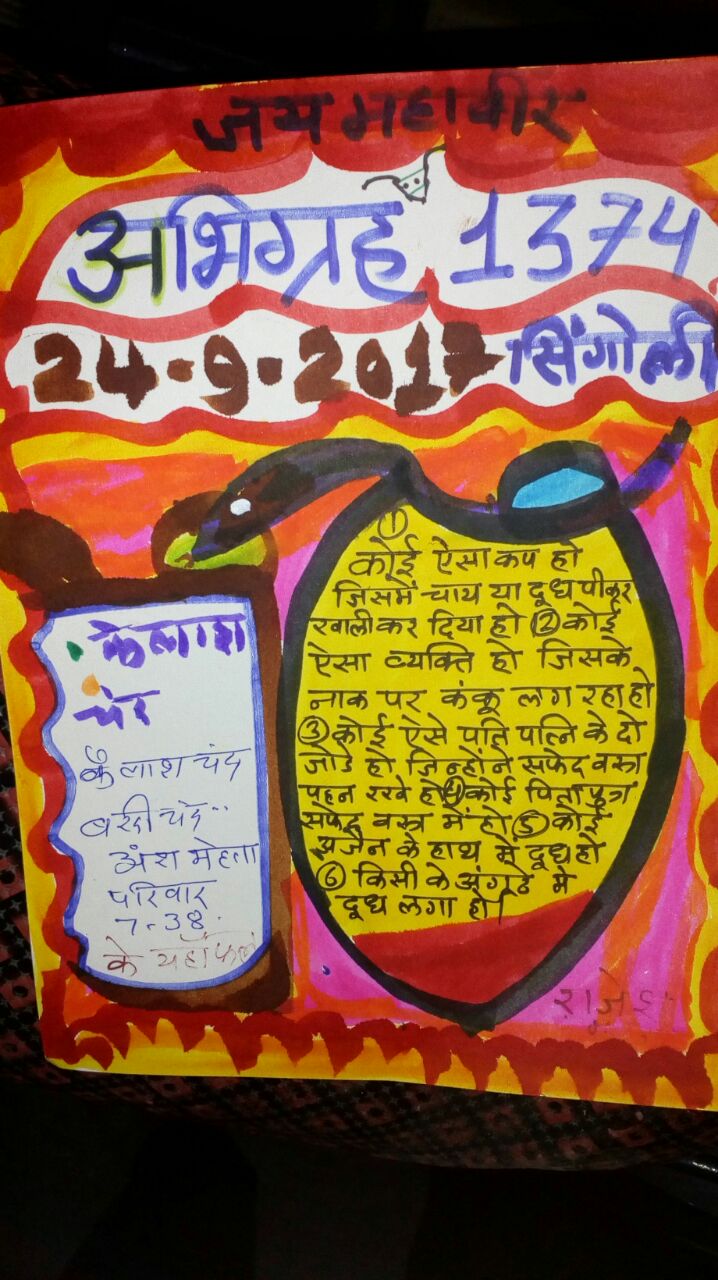 जय महावीर
अभिग्रह 1374
24-9-2017 सिंगोली
①
कोई ऐसा कप हो
जिसमें चाय या दूध पीकर
खाली कर दिया हो ② कोई
ऐसा व्यक्ति हो जिसके
नाक पर कंकू लग रहा हो
③ कोई ऐसे पति पत्नि के दो
जोडे हो जिन्होंने सफेद वस्त्र
पहन रखे हो ④ कोई पिता पुत्र
सफेद वस्त्र में हो ⑤ कोई
अजैन के हाथ में दूध हो
⑥ किसी के अंगूठे में
दूध लगा हो।
कैलाश
चंद
कैलाश चंद
बरदी चंद
अंश मेहता
परिवार
7-38
के यहाँ फला
राजेश